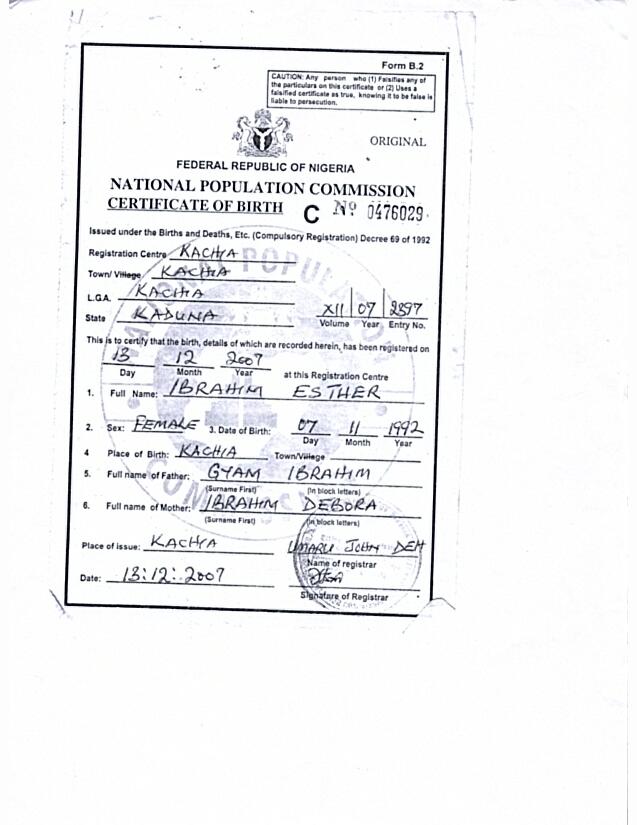 Form B.2
CAUTION: Any person who (1) Falsifies any of
the particulars on this certificate or (2) Uses a
falsified certificate as true, knowing it to be false is
liable to persecution.
ORIGINAL
FEDERAL REPUBLIC OF NIGERIA
NATIONAL POPULATION COMMISSION
CERTIFICATE OF BIRTH C No 0476029
Issued under the Births and Deaths, Etc. (Compulsory Registration) Decree 69 of 1992
Registration Centre KACHIA
Town/ Village KACHIA
L.G.A. KACHIA
State KADUNA
XII 07 2397
Volume Year Entry No.
This is to certify that the birth, details of which are recorded herein, has been registered on
13 12 2007
Day Month Year at this Registration Centre
1. Full Name: IBRAHIM ESTHER
2. Sex: FEMALE 3. Date of Birth: 07 11 1992
Day Month Year
4 Place of Birth: KACHIA Town/Village
5. Full name of Father: GYAM IBRAHIM
(Surname First) (In block letters)
6. Full name of Mother: IBRAHIM DEBORA
(Surname First) (In block letters)
Place of issue: KACHIA UMARU JOHN
Name of registrar
Date: 13:12:2007
Signature of Registrar